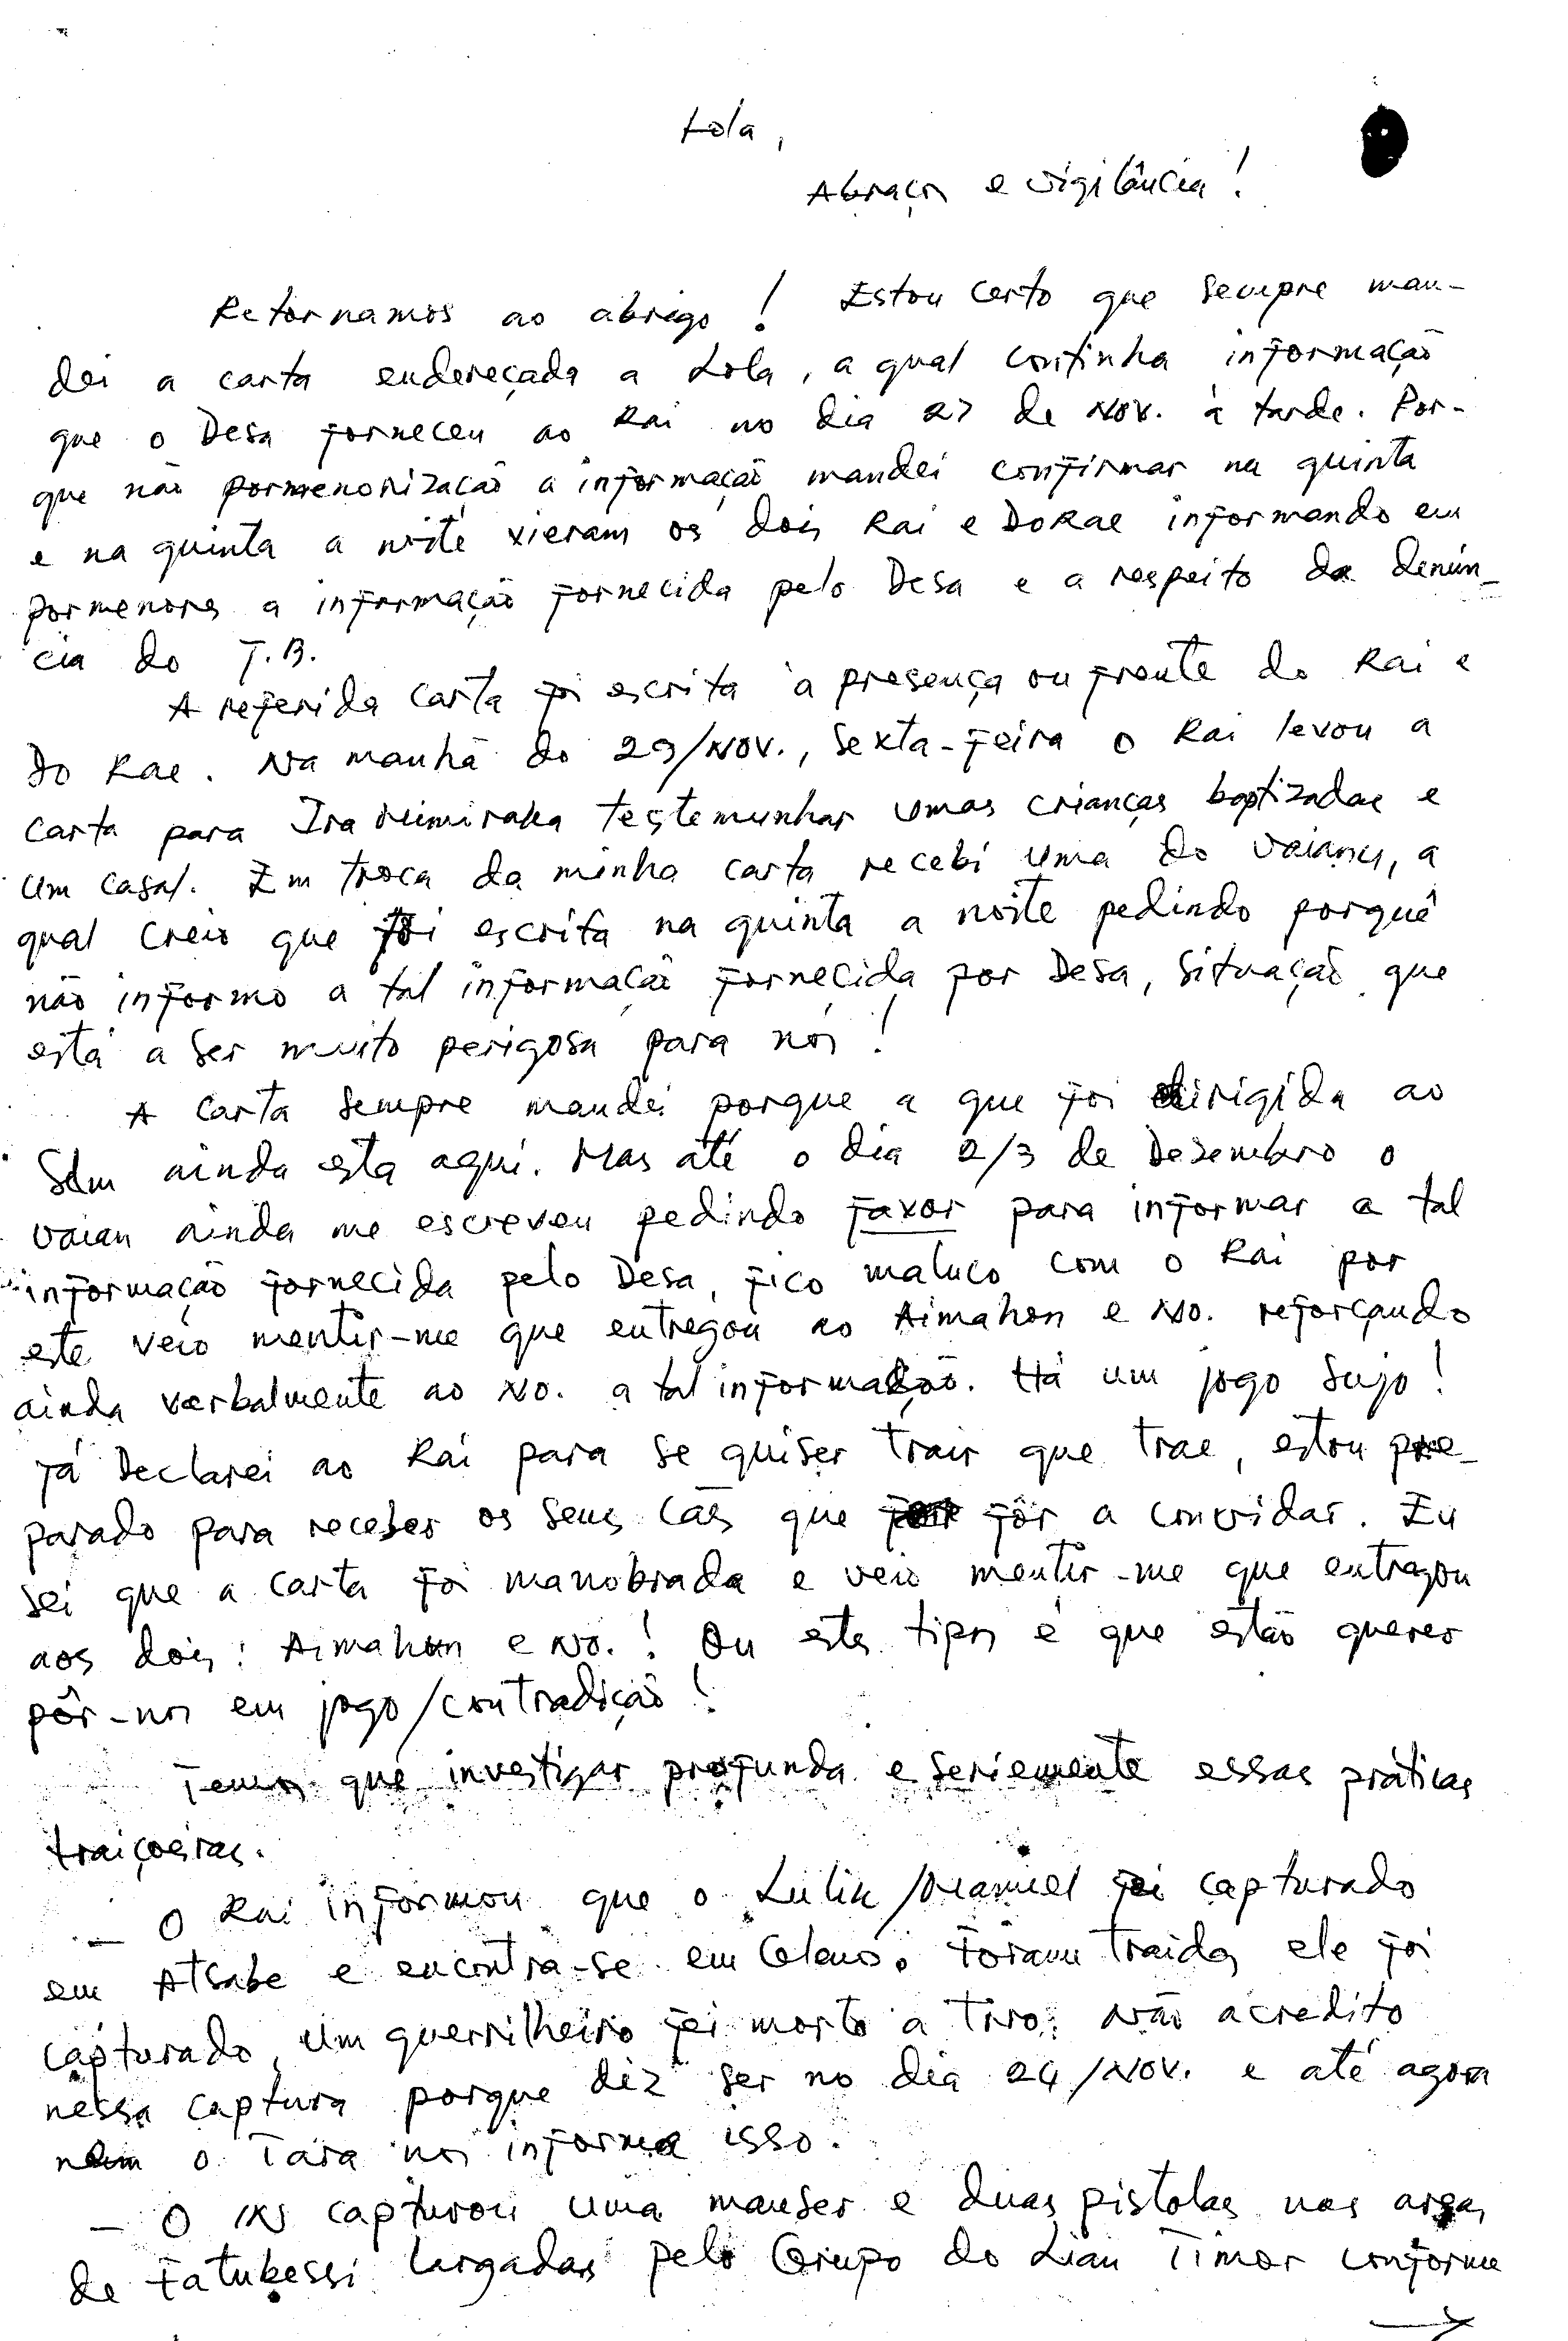 Lola,
Abraços e vigilância!
Retornamos ao abrigo! Estou certo que sempre man-
dei a carta endereçada a Lola, a qual continha informação
que o Desa forneceu ao Rai no dia 27 de Nov. à tarde. Por-
que não pormenorização a informação mandei confirmar na quinta
e na quinta a noite vieram os dois Rai e DoRae informando em
pormenores a informação fornecida pelo Desa e a respeito da denún-
cia do T.B.
A referida carta foi escrita à presença ou frente do Rai e
Do Rae. Na manhã do 29/Nov., sexta-feira o Rai levou a
carta para testemunhar umas crianças baptizadas e
um casal. Em troca da minha carta recebi uma do Vaiany, a
qual creio que foi escrita na quinta a noite pedindo porquê
não informo a tal informação fornecida por Desa, situação que
está a ser muito perigosa para nós!
A carta sempre mandei porque a que foi dirigida ao
ainda esta aqui. Mas até o dia 2/3 de Dezembro o
Vaian ainda me escreveu pedindo favor para informar a tal
informação fornecida pelo Desa, fico maluco com o Rai por
este veio mentir-me que entregou ao Aimahon e No. reforçando
ainda verbalmente ao No. a tal informação. Há um jogo sujo!
Já Declarei ao Rai para se quiser trair que trae, estou pre-
parado para receber os seus cães que fôr a convidar. Eu
sei que a carta foi manobrada e veio mentir-me que entregou
aos dois: Aimahun e No.! Ou estes tipos é que estão querer
pôr-nos em jogo/contradição!
Temos que investigar profunda e seriemente essas práticas
traiçoeiras.
- O Rai informou que o Lulik/Manuel foi capturado
em Atsabe e encontra-se em Gleno. Foram traidos ele foi
capturado, um guerrilheiro foi morto a tiro. Não acredito
nessa captura porque diz ser no dia 24/Nov. e até agora
nem o Tara nos informa isso.
- O IN capturou uma mauser e duas pistolas nas areas
de Fatubessi largadas pelo Grupo do Lian Timor conforme
→